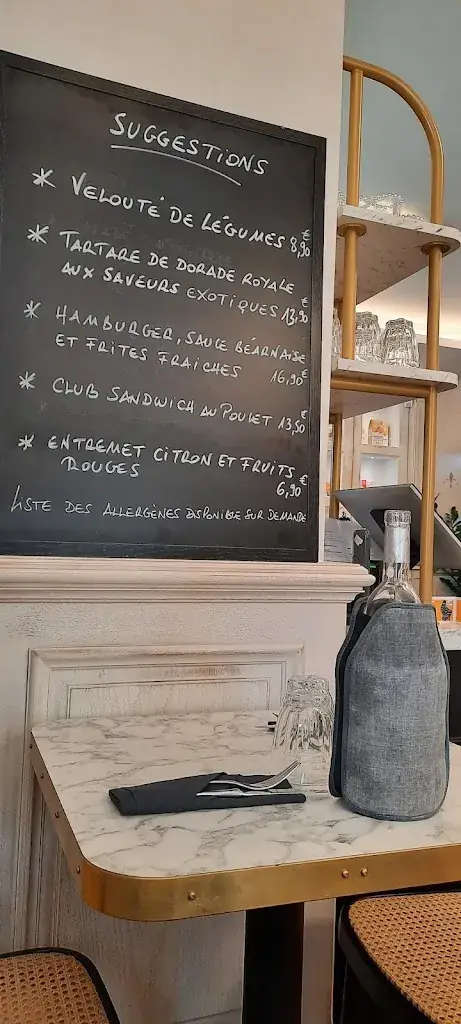 SUGGESTIONS
* VELOUTÉ DE LÉGUMES 8,90€
* TARTARE DE DORADE ROYALE
AUX SAVEURS EXOTIQUES 13,90€
* HAMBURGER, SAUCE BÉARNAISE
ET FRITES FRAICHES 16,90€
* CLUB SANDWICH AU POULET 13,50€
* ENTREMET CITRON ET FRUITS
ROUGES 6,90€
LISTE DES ALLERGÈNES DISPONIBLE SUR DEMANDE